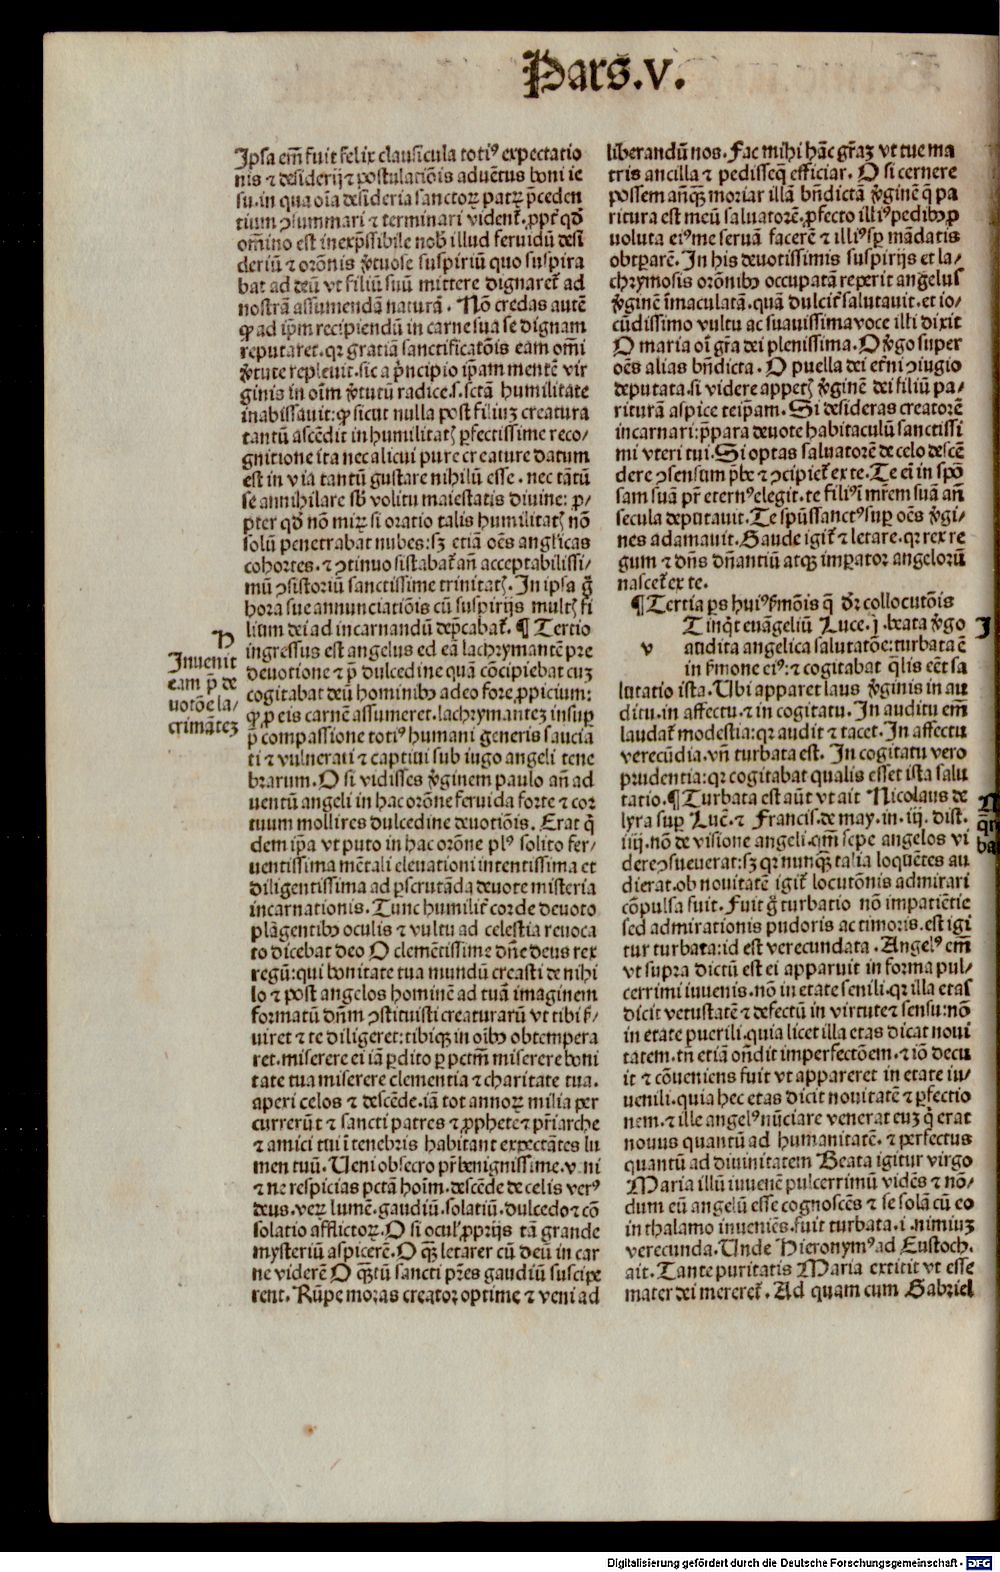 Pars.V.
Ipsa em̄ fuit felix clausicula totiꝰ expectatio
nis ⁊ desiderij ⁊ postulatiōis aduētus boni ie
su. in qua oīa desideria sanctoꝝ patꝝ p̄ceden
tium ꝯsummari ⁊ terminari vident᷑. ꝓpt̄ qd̄
om̄ino est inexp̄ssibile nob̄ illud feruidū desi
deriū ⁊ orōnis v̓tuose suspiriū quo suspira
bat ad deū vt filiū suū mittere dignaret᷑ ad
nostrā assumendā naturā. Nō credas autē
ꝙ ad ip̄m recipiendū in carne sua se dignam
reputaret. qr gratiā sanctificatōis eam om̄i
v̓tute repleuit. sic a p̄ncipio ip̄am mentē vir
ginis in oīm v̓tutū radice.s. sctā humilitate
inabissauit: ꝙ sicut nulla post filiuꝫ creatura
tantū ascēdit in humilitatꝭ ꝑfectissime reco-
gnitione ita nec alicui pure creature datum
est in via tantū gustare nihilū esse. nec tātū
se annihilare sb̄ volitu maiestatis diuine: ꝓ-
pter qd̄ nō miꝝ si oratio talis humilitatꝭ nō
solū penetrabat nubes: sꝫ etiā oēs angl̓icas
cohortes. ⁊ ꝯtinuo sistabat᷑ añ acceptabilissi-
mū ꝯsistoriū sanctissime trinitatꝭ. In ipsa g̊
hora sue annunciatiōis cū suspirijs multꝭ fi
lium dei ad incarnandū dep̄cabat᷑. ¶ Tertio
ingressus est angelus ed eā lachrymantē pre
deuotione ⁊ p̄ dulcedine quā cōcipiebat cuꝫ
cogitabat deū hominibꝰ adeo fore ꝓpicium:
ꝙ ꝓ eis carnē assumeret. lachrymanteꝫ insuꝑ
p̄ compassione totiꝰ humani generis saucia
ti ⁊ vulnerati ⁊ captiui sub iugo angeli tene
brarum. O si vidisses v̓ginem paulo añ ad
uentū angeli in hac orōne feruida forte ⁊ cor
tuum mollires dulcedine deuotiōis. Erat q̄
dem ip̄a vt puto in hac orōne plꝰ solito fer-
uentissima mētali eleuationi intentissima et
diligentissima ad ꝑscrutādā deuote misteria
incarnationis. Tunc humilit᷑ corde deuoto
plāgentibꝰ oculis ⁊ vultu ad celestia reuoca
to dicebat deo O clemētissime dn̄e deus rex
regū: qui bonitate tua mundū creasti de nihi
lo ⁊ post angelos hominē ad tuā imaginem
formatū dn̄m ꝯstituisti creaturarū vt tibi s̓-
uiret ⁊ te diligeret: tibiqꝫ in oībꝰ obtempera
ret. miserere ei iā ꝑdito ꝑ pctm̄ miserere boni
tate tua miserere clementia ⁊ charitate tua.
aperi celos ⁊ descēde. iā tot annoꝝ milia per
currerūt ⁊ sancti patres ⁊ ꝓphete ⁊ pr̄iarche
⁊ amici tui ī tenebris habitant expectātes lu
men tuū. Ueni obsecro pr̄ benignissime. veni
⁊ ne respicias pctā hoīm. descēde de celis verꝰ
deus. veꝝ lumē. gaudiū. solatiū. dulcedo ⁊ cō
solatio afflictoꝝ. O si ocul̓ ꝓprijs tā grande
mysteriū aspicerē. O qꝫ̄ letarer cū deū in car
ne viderē O qꝫ̄tū sancti pr̄es gaudiū suscipe
rent. Rūpe moras creator optime ⁊ veni ad
h
Inuenit
eam p̄ de
uotōe la/
crimāteꝫ
liberandū nos. Fac mihi hāc gr̄aꝫ vt tue ma
tris ancilla ⁊ pedisseq̄ efficiar. O si cernere
possem anqꝫ̄ moriar illā bn̄dictā v̓ginē q̄ pa
ritura est meū saluatorē. ꝓfecto illiꝰ pedibꝰ ꝓ
uoluta eiꝰ me seruā facerē ⁊ illiꝰ sꝑ mādatis
obtꝑarē. In his deuotissimis suspirijs et la-
chrymosis orōnibꝰ occupatā reperit angelus
v̓ginē īmaculatā. quā dulcit᷑ salutauit. et io-
cūdissimo vultu ac suauissima voce illi dixit
O maria oī gr̄a dei plenissima. O v̓go super
oēs alias bn̄dicta. O puella dei et̓ni ꝯiugio
deputata. si videre appetꝭ v̓ginē dei filiū pa-
riturā aspice teip̄am. Si desideras creatorē
incarnari: p̄para deuote habitaculū sanctissi
mi vteri tui. Si optas saluatorē de celo descē
dere ꝯsensum p̄be ⁊ ꝯcipiet᷑ ex te. Te em̄ in spō
sam suā pr̄ eternꝰ elegit. te filiꝰ ī mr̄em suā añ
secula deputauit. Te spūssanctꝰ suꝑ oēs v̓gi-
nes adamauit. Gaude igit᷑ ⁊ letare. qr rex re
gum ⁊ dn̄s dn̄antiū atqꝫ imꝑator angelorū
nascet᷑ ex te.
¶ Tertia ꝑs huiꝰ s̓mōis q̄ dr̄ collocutōis
Tinq̄t euāgeliū Luce. j. beata v̓go
v audita angelica salutatōe: turbata ē
in s̓mone eiꝰ: ⁊ cogitabat q̄lis eēt sa
lutatio ista. Ubi apparet laus v̓ginis in au
ditu. in affectu. ⁊ in cogitatu. In auditu em̄
laudat᷑ modestia: qr audit ⁊ tacet. In affectu
verecūdia. vn̄ turbata est. In cogitatu vero
prudentia: qr cogitabat qualis esset ista salu
tatio. ¶ Turbata est aūt vt ait Nicolaus de
lyra suꝑ Lucē. ⁊ Francis. de may. in. iij. dist.
iiij. nō de visione angeli. qm̄ sepe angelos vi
dere ꝯsueuerat: sꝫ qr nunqꝫ̄ talia loquētes au
dierat. ob nouitatē igit᷑ locutōnis admirari
cōpulsa fuit. Fuit g̊ turbatio nō impatiētie
sed admirationis pudoris ac timoris. est igi
tur turbata: id est verecundata. Angelꝰ em̄
vt supra dictū est ei apparuit in forma pul-
cerrimi iuuenis. nō in etate senili. qr illa etas
dicit vetustatē ⁊ defectū in virtute ⁊ sensu: nō
in etate puerili. quia licet illa etas dicat noui
tatem. tn̄ etiā on̄dit imperfectōem. ⁊ iō decu
it ⁊ cōueniens fuit vt appareret in etate iu-
uenili. quia hec etas dicit nouitatē ⁊ ꝑfectio
nem. ⁊ ille angelꝰ nūciare venerat euꝫ q̄ erat
nouus quantū ad humanitatē. ⁊ perfectus
quantū ad diuinitatem Beata igitur virgo
Maria illū iuuenē pulcerrimū vidēs ⁊ nō-
dum eū angelū esse cognoscēs ⁊ se solā cū eo
in thalamo inueniēs. fuit turbata. i. nimiuꝫ
verecunda. Unde Hieronymꝰ ad Eustoch.
ait. Tante puritatis Maria extitit vt esse
mater dei mereret᷑. Ad quam cum Gabriel
Digitalisierung gefördert durch die Deutsche Forschungsgemeinschaft - DFG